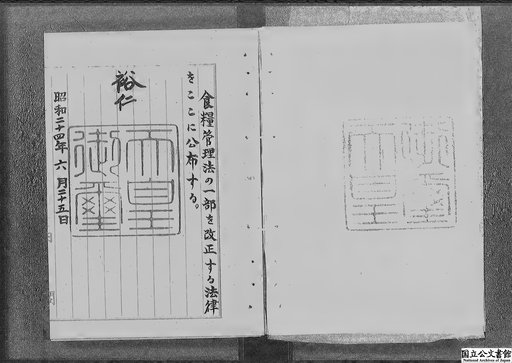 食糧管理法の一部を改正する法律
をここに公布する。
裕仁
天皇
御璽
昭和二十四年六月二十五日
国立公文書館
National Archives of Japan